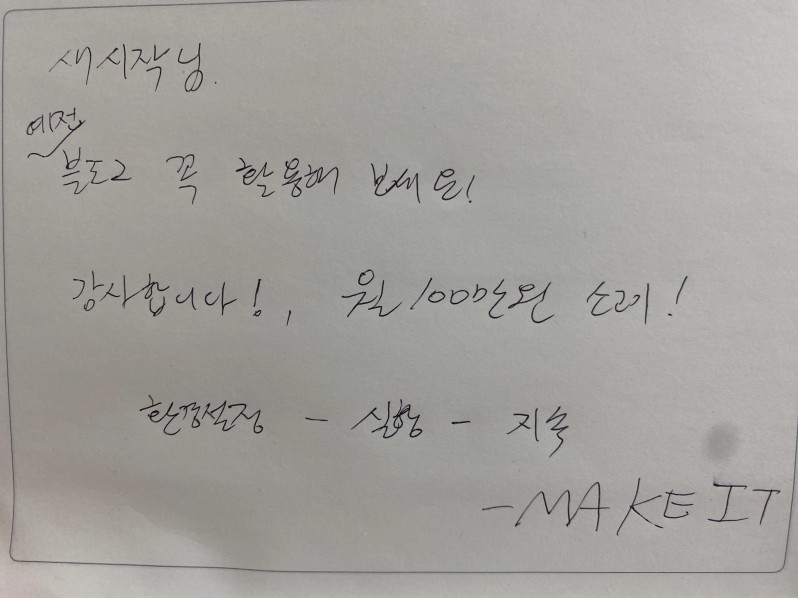 새시작님.
예전
블로그 꼭 활용해 보세요!
감사합니다!, 월 100만원 소리!
환경설정 - 실행 - 지속
- MAKE IT